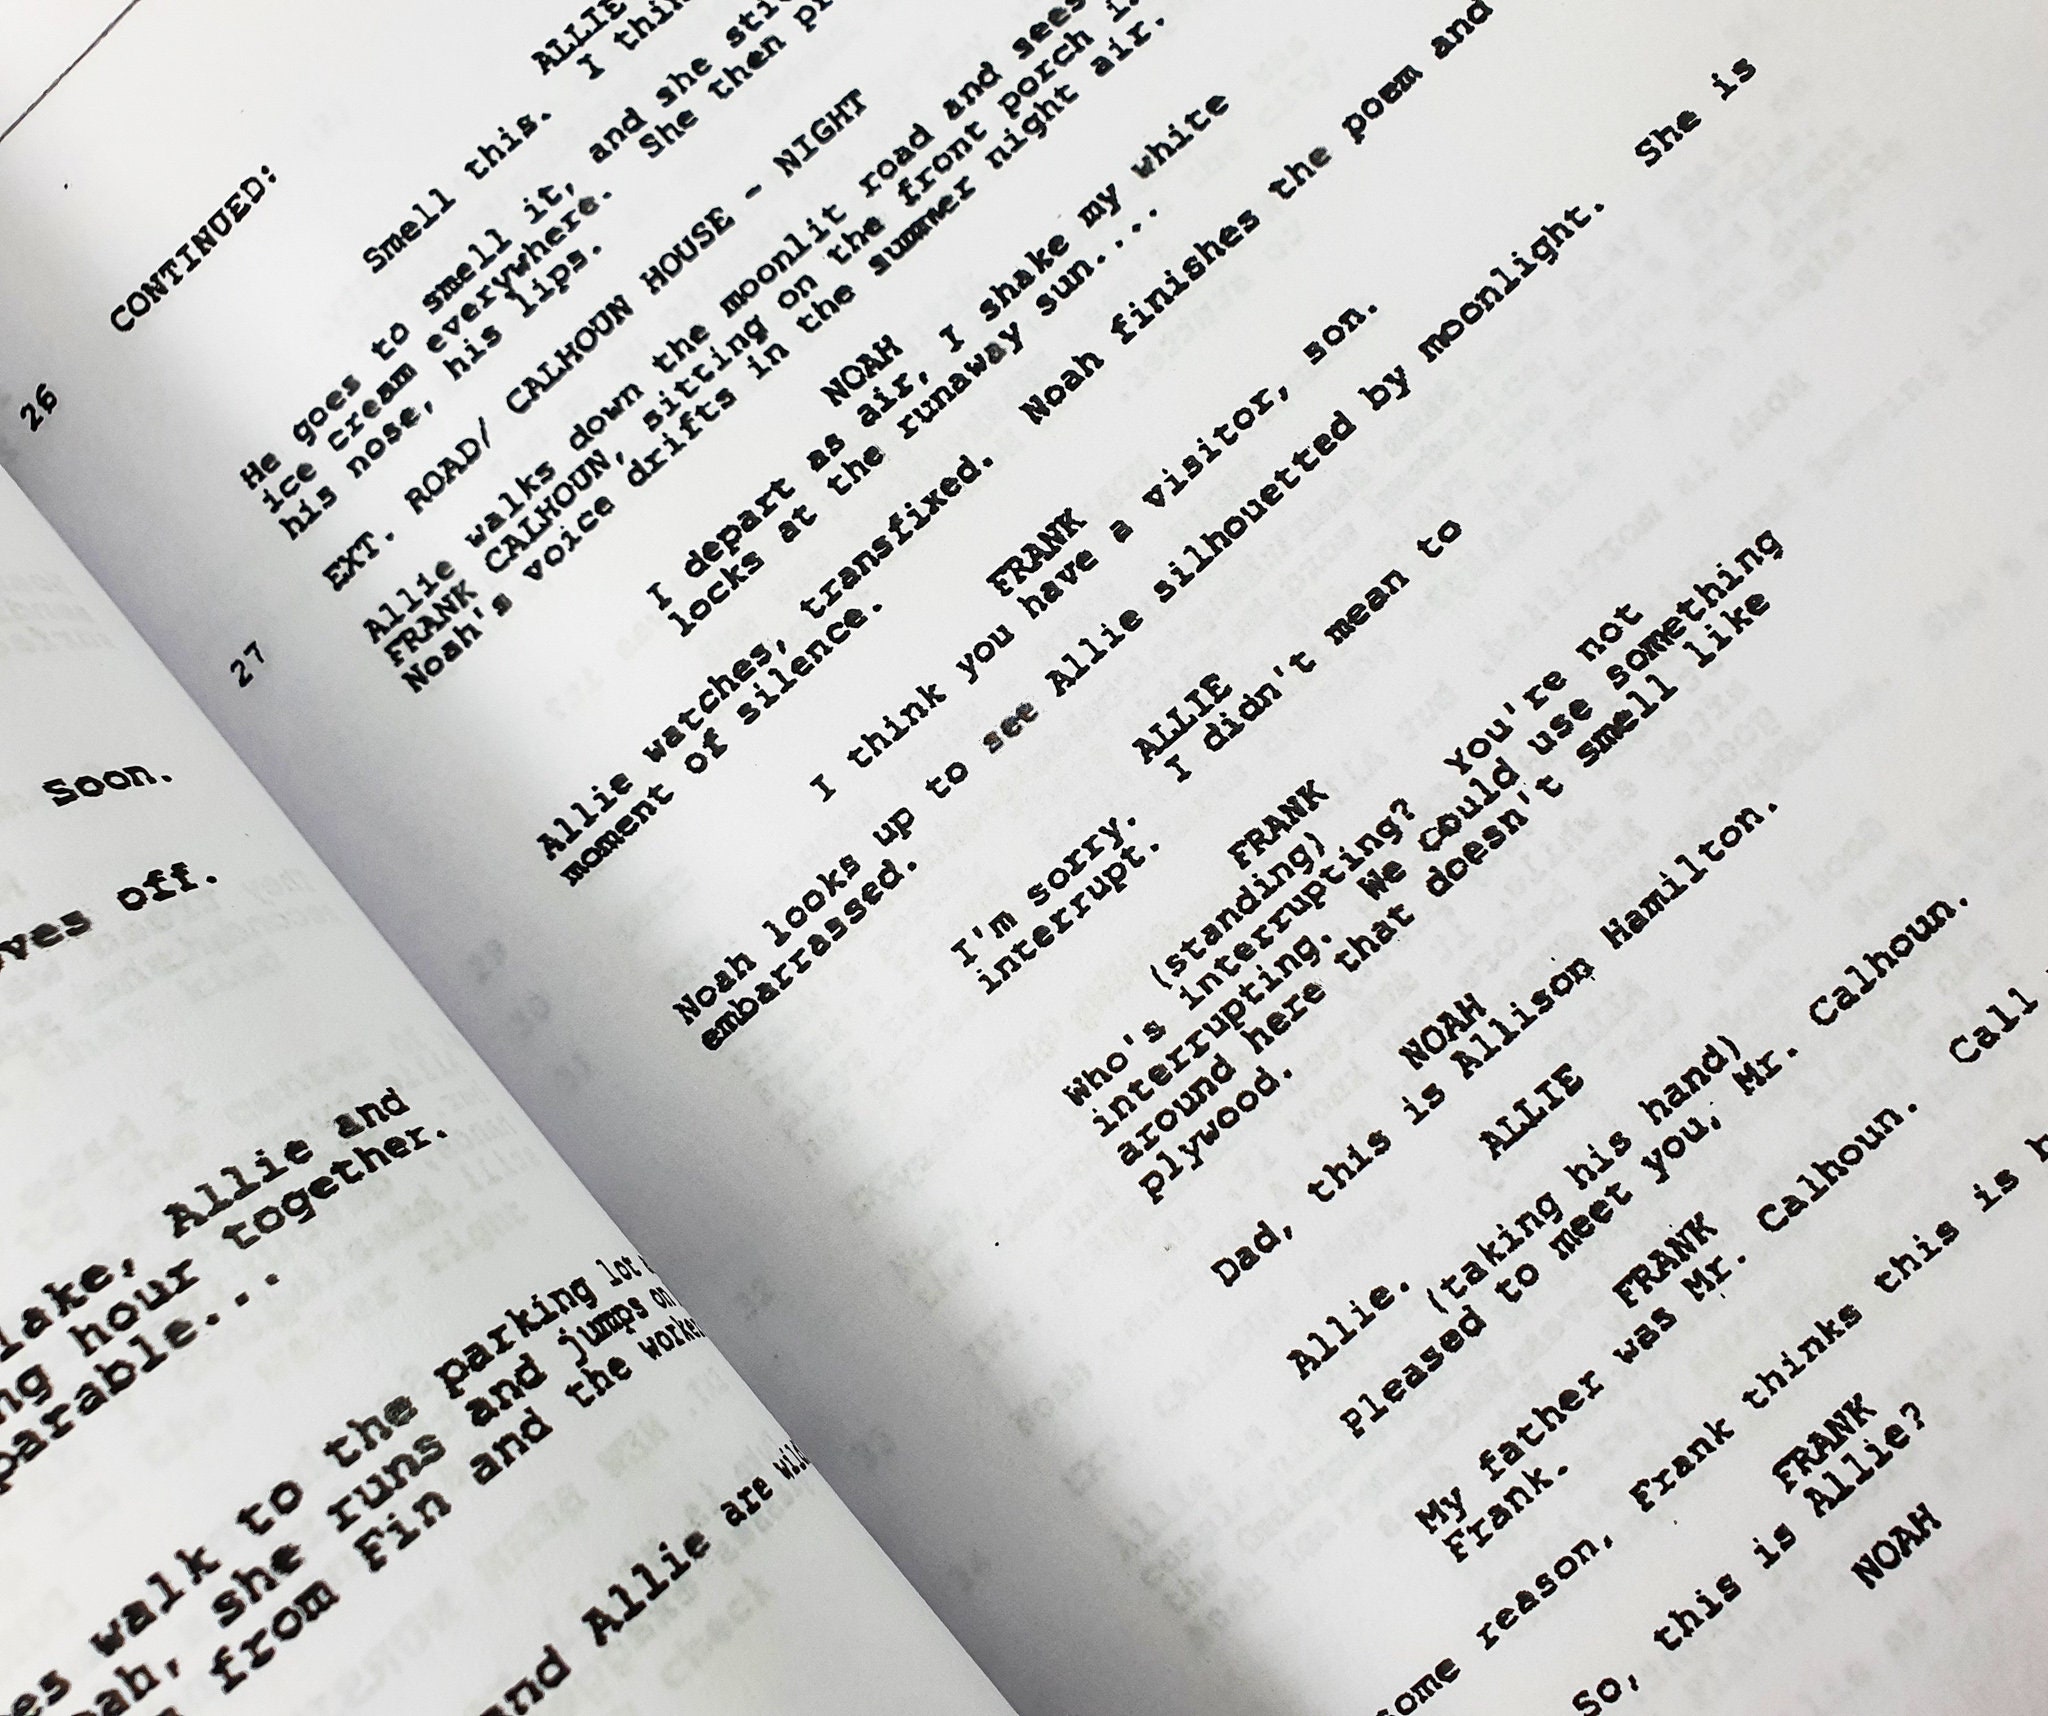 Soon.
ves off.
lake, Allie and
ng hour together.
parable...
es walk to the parking lot
oah, she runs and jumps on
from Fin and the worker
and Allie are wild
ALLIE
CONTINUED:
Smell this. I thin
26
He goes to smell it, and she sti
ice cream everywhere. She then pr
his nose, his lips.
27
EXT. ROAD/ CALHOUN HOUSE - NIGHT
Allie walks down the moonlit road and sees
FRANK CALHOUN, sitting on the front porch i
Noah's voice drifts in the summer night air.
NOAH
I depart as air, I shake my white
locks at the runaway sun....
Allie watches, transfixed. Noah finishes the poem and
moment of silence.
FRANK
I think you have a visitor, son.
Noah looks up to see Allie silhouetted by moonlight. She is
embarrassed.
ALLIE
I'm sorry. I didn't mean to
interrupt.
FRANK
(standing)
Who's interrupting? You're not
interrupting. We could use something
around here that doesn't smell like
plywood.
NOAH
Dad, this is Allison Hamilton.
ALLIE
Allie.
(taking his hand)
Pleased to meet you, Mr. Calhoun.
FRANK
My father was Mr. Calhoun. Call
Frank.
some reason, Frank thinks this is h
FRANK
So, this is Allie?
NOAH